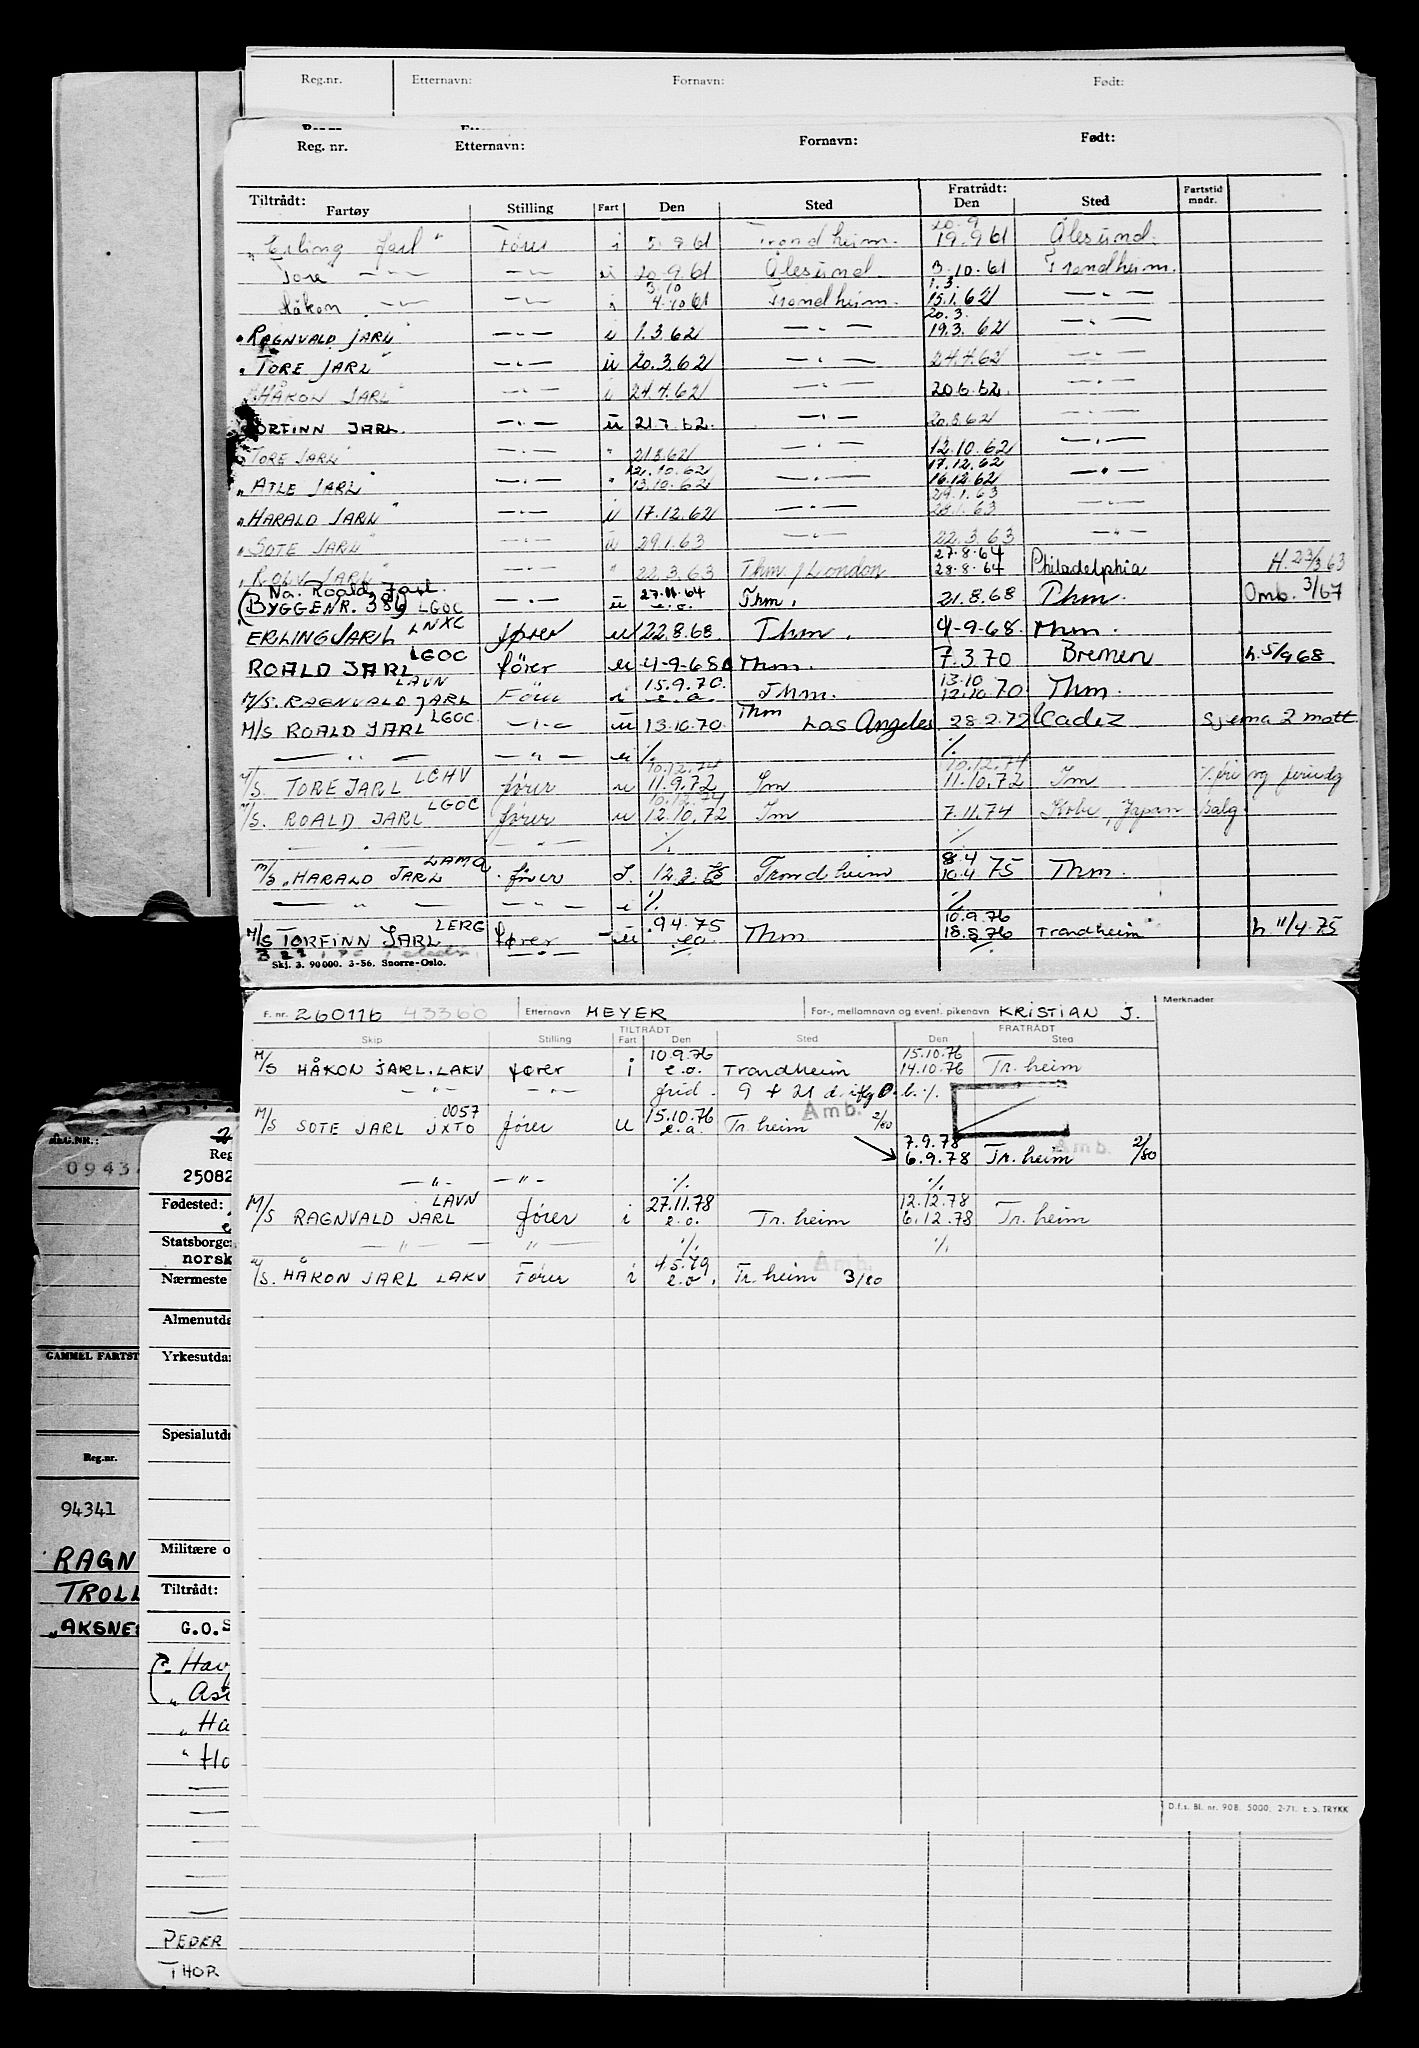 Reg.nr. Etternavn: Fornavn: Født:
Reg. nr. Etternavn: Fornavn: Født:
Tiltrådt: Fratrådt: Fartstid
Fartøy Stilling Fart Den Sted Den Sted mndr.
20.9
„Erling Jarl" Fører i 5.9.61 Trondheim. 19.9.61 Ålesund.
Tore —"— —"— u 20.9.61 Ålesund 3.10.61 Trondheim.
3.10 1.3.
Håkon —"— —"— i 4.10.61 Trondheim. 15.1.62 —"—
20.3.
"RAGNVALD JARL" —"— i 1.3.62 —"— 19.3.62 —"—
"TORE JARL" —"— u 20.3.62 —"— 24.4.62 —"—
"HÅKON JARL" —"— i 24.4.62 —"— 20.6.62. —"—
TORFINN JARL. —"— u 21.7.62. —"— 20.8.62 —"—
TORE JARL" —"— " 21.8.62 —"— 12.10.62 —"—
12.10.62 17.12.62
"ATLE JARL" —"— " 13.10.62 —"— 16.12.62 —"—
29.1.63
"HARALD JARL" —"— u 17.12.62 —"— 28.1.63 —"—
"SOTE JARL" —"— u 29.1.63 —"— 22.3.63 —"—
27.8.64
"ROLV JARL" —"— " 22.3.63 Thm./London 28.8.64 Philadelphia H. 23/3 63
Nå. Roald Jarl. 27.11.64
(BYGGENR. 386) LGOC —"— u e.o. Thm. 21.8.68 Thm. Omb. 3/67
ERLING JARL LNXC fører u 22.8.68 Thm. 4-9-68. Thm.
ROALD JARL LGOC fører u 4-9-68 Thm. 7.3.70 Bremen h. 5/9 68
LAVN 15.9.70. 13.10
M/S. RAGNVALD JARL Fører i e.o. Thm. 12.10 70 Thm.
M/S ROALD JARL LGOC —"— u 13.10.70 Thm Los Angeles 28.2.72 Cadiz Sjema 2 mott
— " — — " — u %. %.
10.12.74 10.12.74
M/S. TORE JARL LCHV fører u 11.9.72 Tm 11.10.72 Tm
10.12.74
M/S. ROALD JARL LGOC fører u 12.10.72 Tm 7.11.74 Kobe, Japan Salg
— " — %. %.
8.4
M/S „HARALD JARL LAMQ fører I. 12.3.75 Trondheim 10.4 75 Thm.
— " — — " — %. %.
9.4.75 10.9.76
M/S TORFINN JARL LERG fører u e.o Thm 18.8.76 Trondheim h 11/4.75
Skj. 3. 90000. 3-56. Snorre-Oslo.
F. nr. 260116 43360 Etternavn MEYER For-, mellomnavn og event. pikenavn KRISTIAN J. Merknader
TILTRÅDT FRATRÅDT
Skip Stilling Fart Den Sted Den Sted
10.9.76 15.10.76
M/S HÅKON JARL. LAKV fører i e.o. Trondheim 14.10.76 Tr.heim
— " — — " — frid. 9 + 21 d. iflg. b. %.
0057 15.10.76 Amb.
M/S SOTE JARL JXTO fører u e.o. Tr.heim 2/80
7.9.78 Amb.
6.9.78 Tr.heim 2/80
— " — — " — %. %.
LAVN 27.11.78 12.12.78
M/S RAGNVALD JARL fører i e.o. Tr.heim 6.12.78 Tr.heim
— " — — " — %. %.
4.5.79 Amb.
M/S. HÅKON JARL LAKV Fører i e.o. Tr.heim 3/80
D.f.s. Bl. nr. 908. 5000. 2-71. E.S. TRYKK
REG.NR.:
0943
Reg
25082
Fødested:
Statsborge
norsk
Nærmeste
Almenutda
GAMMEL FARTST
Yrkesutda
Spesialutd
Reg.nr.
94341
Militære o
RAGN
Tiltrådt:
TROLL
„AKSNE
G.O.S
Hav
„ Ast
„ Ha
" Ho
PEDER
THOR